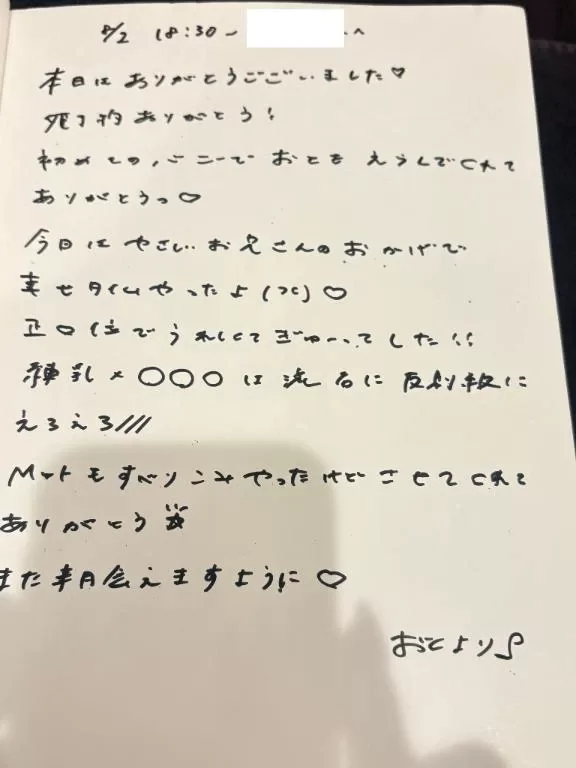 8/2 18:30〜 へ
本日はありがとうございました♡
ありがとう!
初めての、ニーで おとを えらんでくれて
ありがとうっ♡
今日は やさしいお兄さんのおかげで
幸せタイムやったよ ♡
正〇位で うれしくてぎゅーってした!!
練乳×〇〇〇は 流石に 反則級に
えろえろ///
Mットもすべりこみやったけど させてくれて
ありがとう☆
また 会えますように♡
おとより